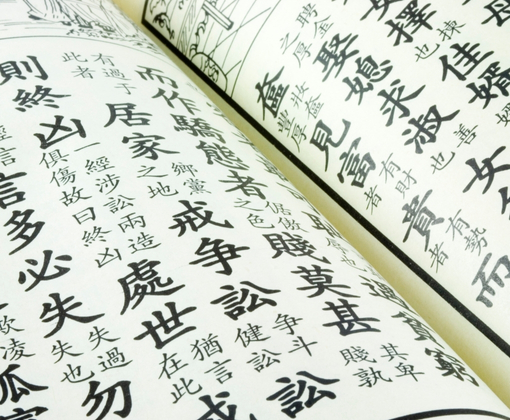 毋
女擇揀也佳婿
聘金之厚娶媳求淑善也女
奩妝奩豐厚見富有財者貴有勢者而
貧窮
而作驕態者倨傲之色賤莫甚其卑賤孰
有過于此者居家鄉黨之地戒爭訟爭斗健訟訟
則終凶一經涉訟兩造俱傷故曰終凶處世猶言在此戒
言多必失失過失也勿
欺凌孤